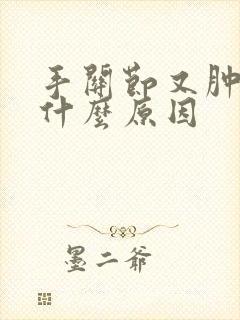 手關節又肿
什麼原因
墨二爷